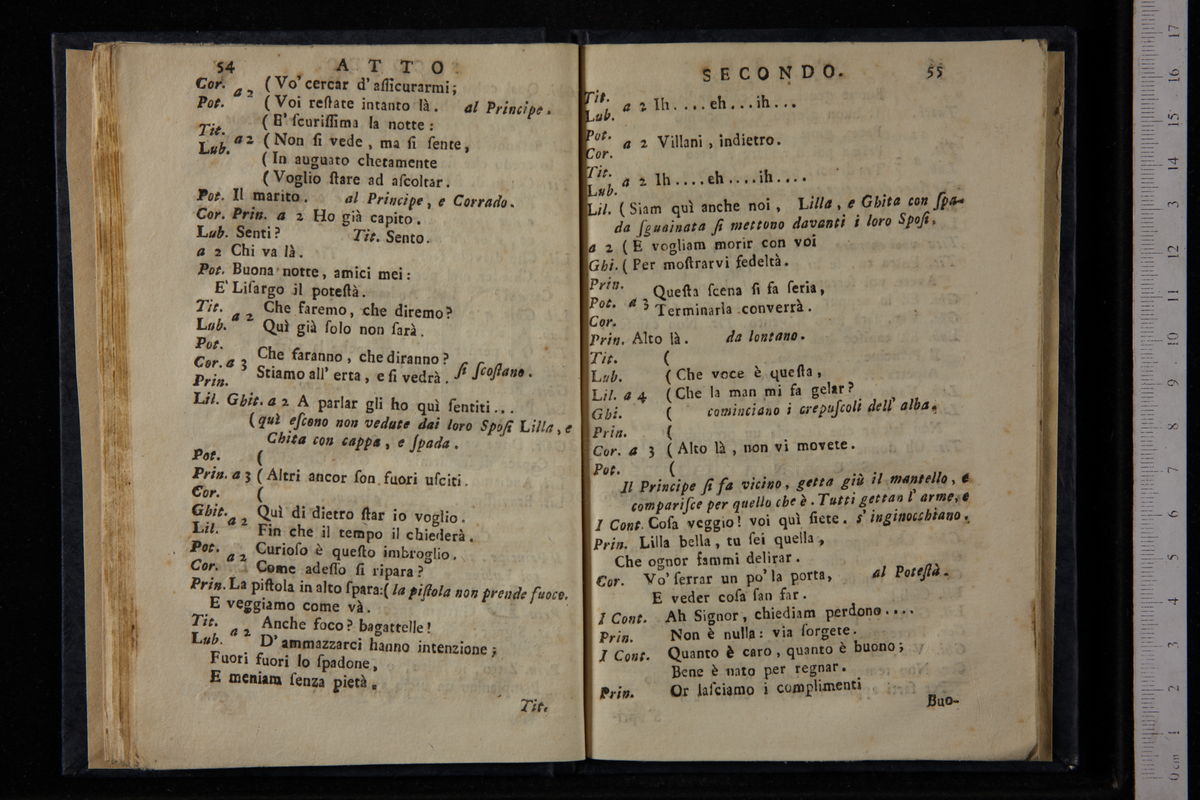 54 ATTO
Cor. a 2 (Vo' cercar d' aſſicurarmi;
Pot. (Voi reſtate intanto là. al Principe.
(E' ſcuriſſima la notte:
Tit. Lub. a 2 (Non ſi vede, ma ſi ſente,
(In auguato chetamente
(Voglio ſtare ad aſcoltar.
Pot. Il marito. al Principe, e Corrado.
Cor. Prin. a 2 Ho già capito.
Lub. Senti? Tit. Sento.
a 2 Chi va là.
Pot. Buona notte, amici mei:
E' Liſargo il poteſtà.
Tit. a 2 Che faremo, che diremo?
Lub. Quì già ſolo non ſarà.
Pot.
Cor. a 3 Che faranno, che diranno?
Prin. Stiamo all' erta, e ſi vedrà. ſi ſcoſtano.
Lil. Ghit. a 2 A parlar gli ho quì ſentiti...
(quì eſcono non vedute dai loro Spoſi Lilla, e
Chita con cappa, e ſpada.
Pot. (
Prin. a 3 (Altri ancor ſon fuori uſciti.
Cor. (
Ghit. a 2 Quì di dietro ſtar io voglio.
Lil. Fin che il tempo il chiederà.
Pot. a 2 Curioſo è queſto imbroglio.
Cor. Come adeſſo ſi ripara?
Prin. La piſtola in alto ſpara: (la piſtola non prende fuoco.
E veggiamo come và.
Tit. a 2 Anche foco? bagattelle!
Lub. D' ammazzarci hanno intenzione;
Fuori fuori lo ſpadone,
E meniam ſenza pietà.
Tit.
SECONDO. 55
Tit.
Lub. a 2 Ih....eh...ih...
Pot.
Cor. a 2 Villani, indietro.
Tit.
Lub. a 2 Ih....eh....ih....
Lil. (Siam quì anche noi, Lilla, e Ghita con ſpa-
da ſguainata ſi mettono davanti i loro Spoſi.
a 2 (E vogliam morir con voi
Ghi. (Per moſtrarvi fedeltà.
Prin. Queſta ſcena ſi fa ſeria,
Pot. a 3 Terminarla converrà.
Cor.
Prin. Alto là. da lontano.
Tit. (
Lub. (Che voce è queſta,
Lil. a 4 (Che la man mi fa gelar?
Ghi. ( cominciano i crepuſcoli dell' alba.
Prin. (
Cor. a 3 (Alto là, non vi movete.
Pot. (
Il Principe ſi fa vicino, getta giù il mantello, e
compariſce per quello che è. Tutti gettan l' arme, e
I Cont. Coſa veggio! voi quì ſiete. s' inginocchiano.
Prin. Lilla bella, tu ſei quella,
Che ognor fammi delirar.
Cor. Vo' ſerrar un po' la porta, al Poteſtà.
E veder coſa ſan far.
I Cont. Ah Signor, chiediam perdono....
Prin. Non è nulla: via ſorgete.
I Cont. Quanto è caro, quanto è buono;
Bene è nato per regnar.
Prin. Or laſciamo i complimenti
Buo-
17
16
15
14
13
12
11
10
9
8
7
6
5
4
3
2
1
0 cm